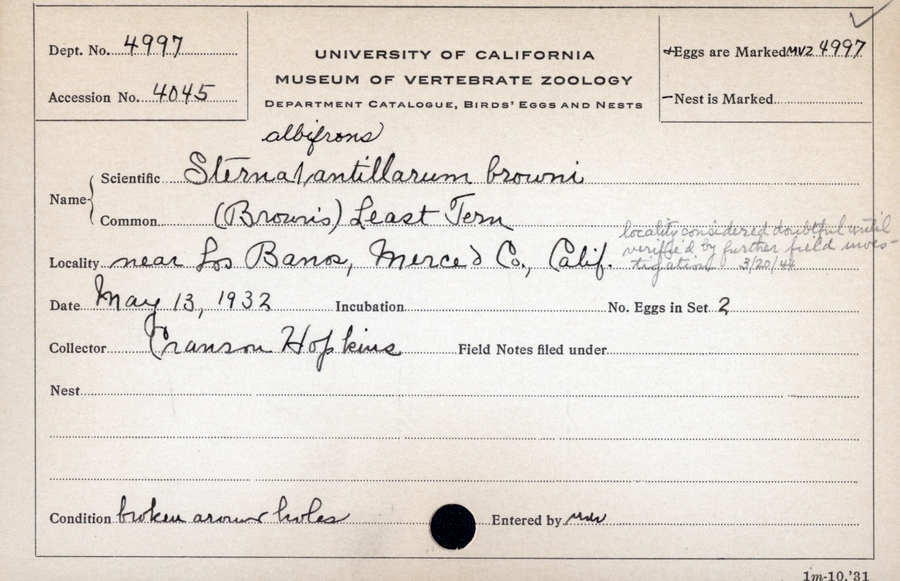 Dept. No. 4997
Accession No. 4045
UNIVERSITY OF CALIFORNIA
MUSEUM OF VERTEBRATE ZOOLOGY
DEPARTMENT CATALOGUE, BIRDS' EGGS AND NESTS
+Eggs are Marked MVZ 4997
-Nest is Marked
albifrons
Name Scientific Sterna/antillarum browni
Common (Brown's) Least Tern
Locality near Los Banos, Merced Co., Calif.
locality considered doubtful until
verified by further field inves-
tigation 3/20/44
Date May 13, 1932 Incubation No. Eggs in Set 2
Collector Cranson Hopkins Field Notes filed under
Nest
Condition broken around holes Entered by
1m-10,'31